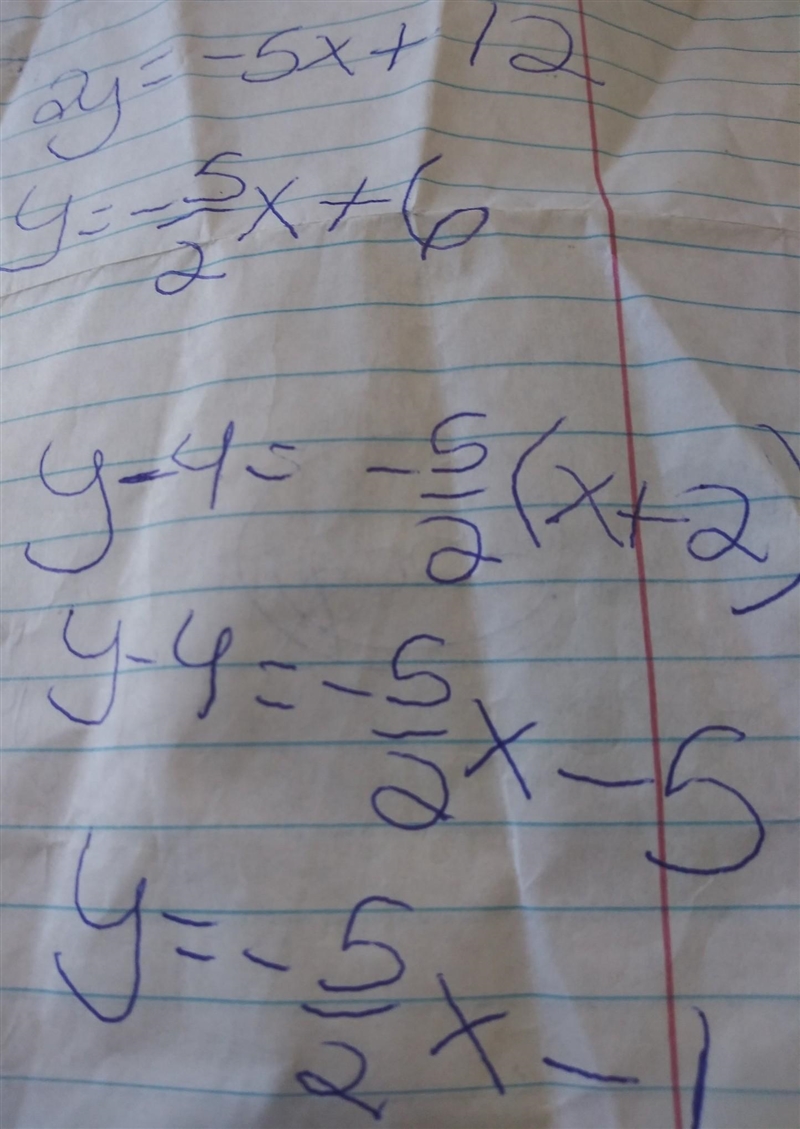 2y = -5x + 12
y = -5/2 x + 6
y - 4 = -5/2 (x + 2)
y - 4 = -5/2 x - 5
y = -5/2 x - 1